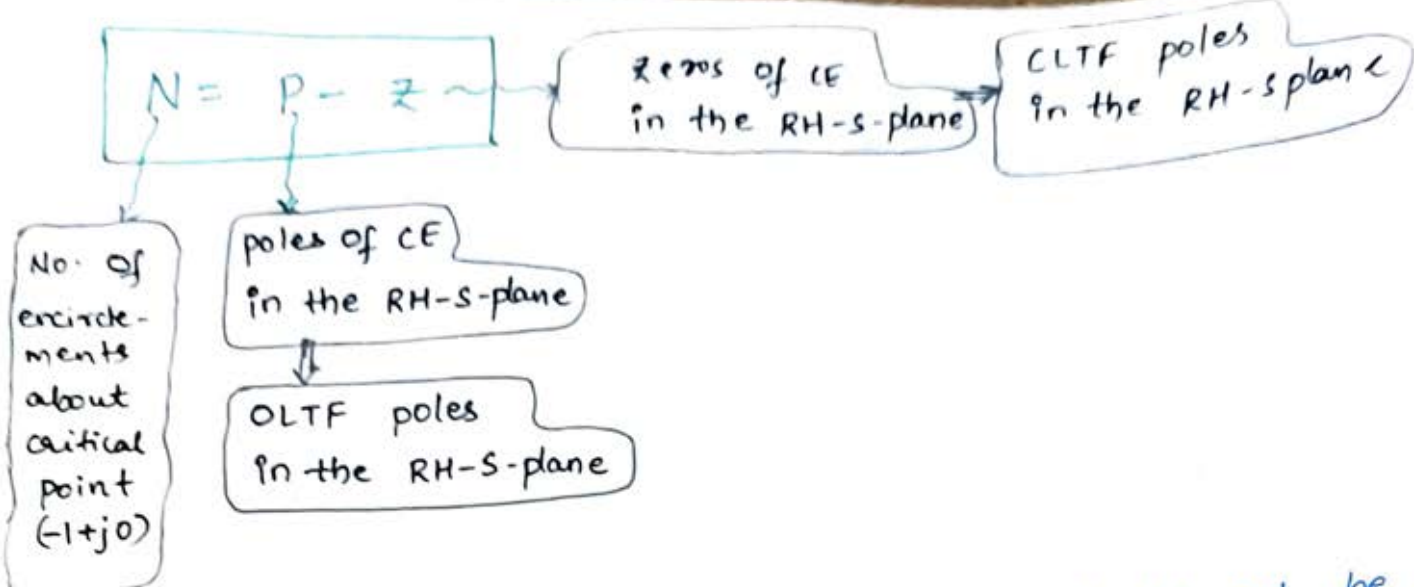 N = P - Z
zeros of CE
in the RH-S-plane
CLTF poles
in the RH-S plane
No. of
encircle-
ments
about
critical
point
(-1+j0)
poles of CE
in the RH-S-plane
OLTF poles
in the RH-S-plane
be